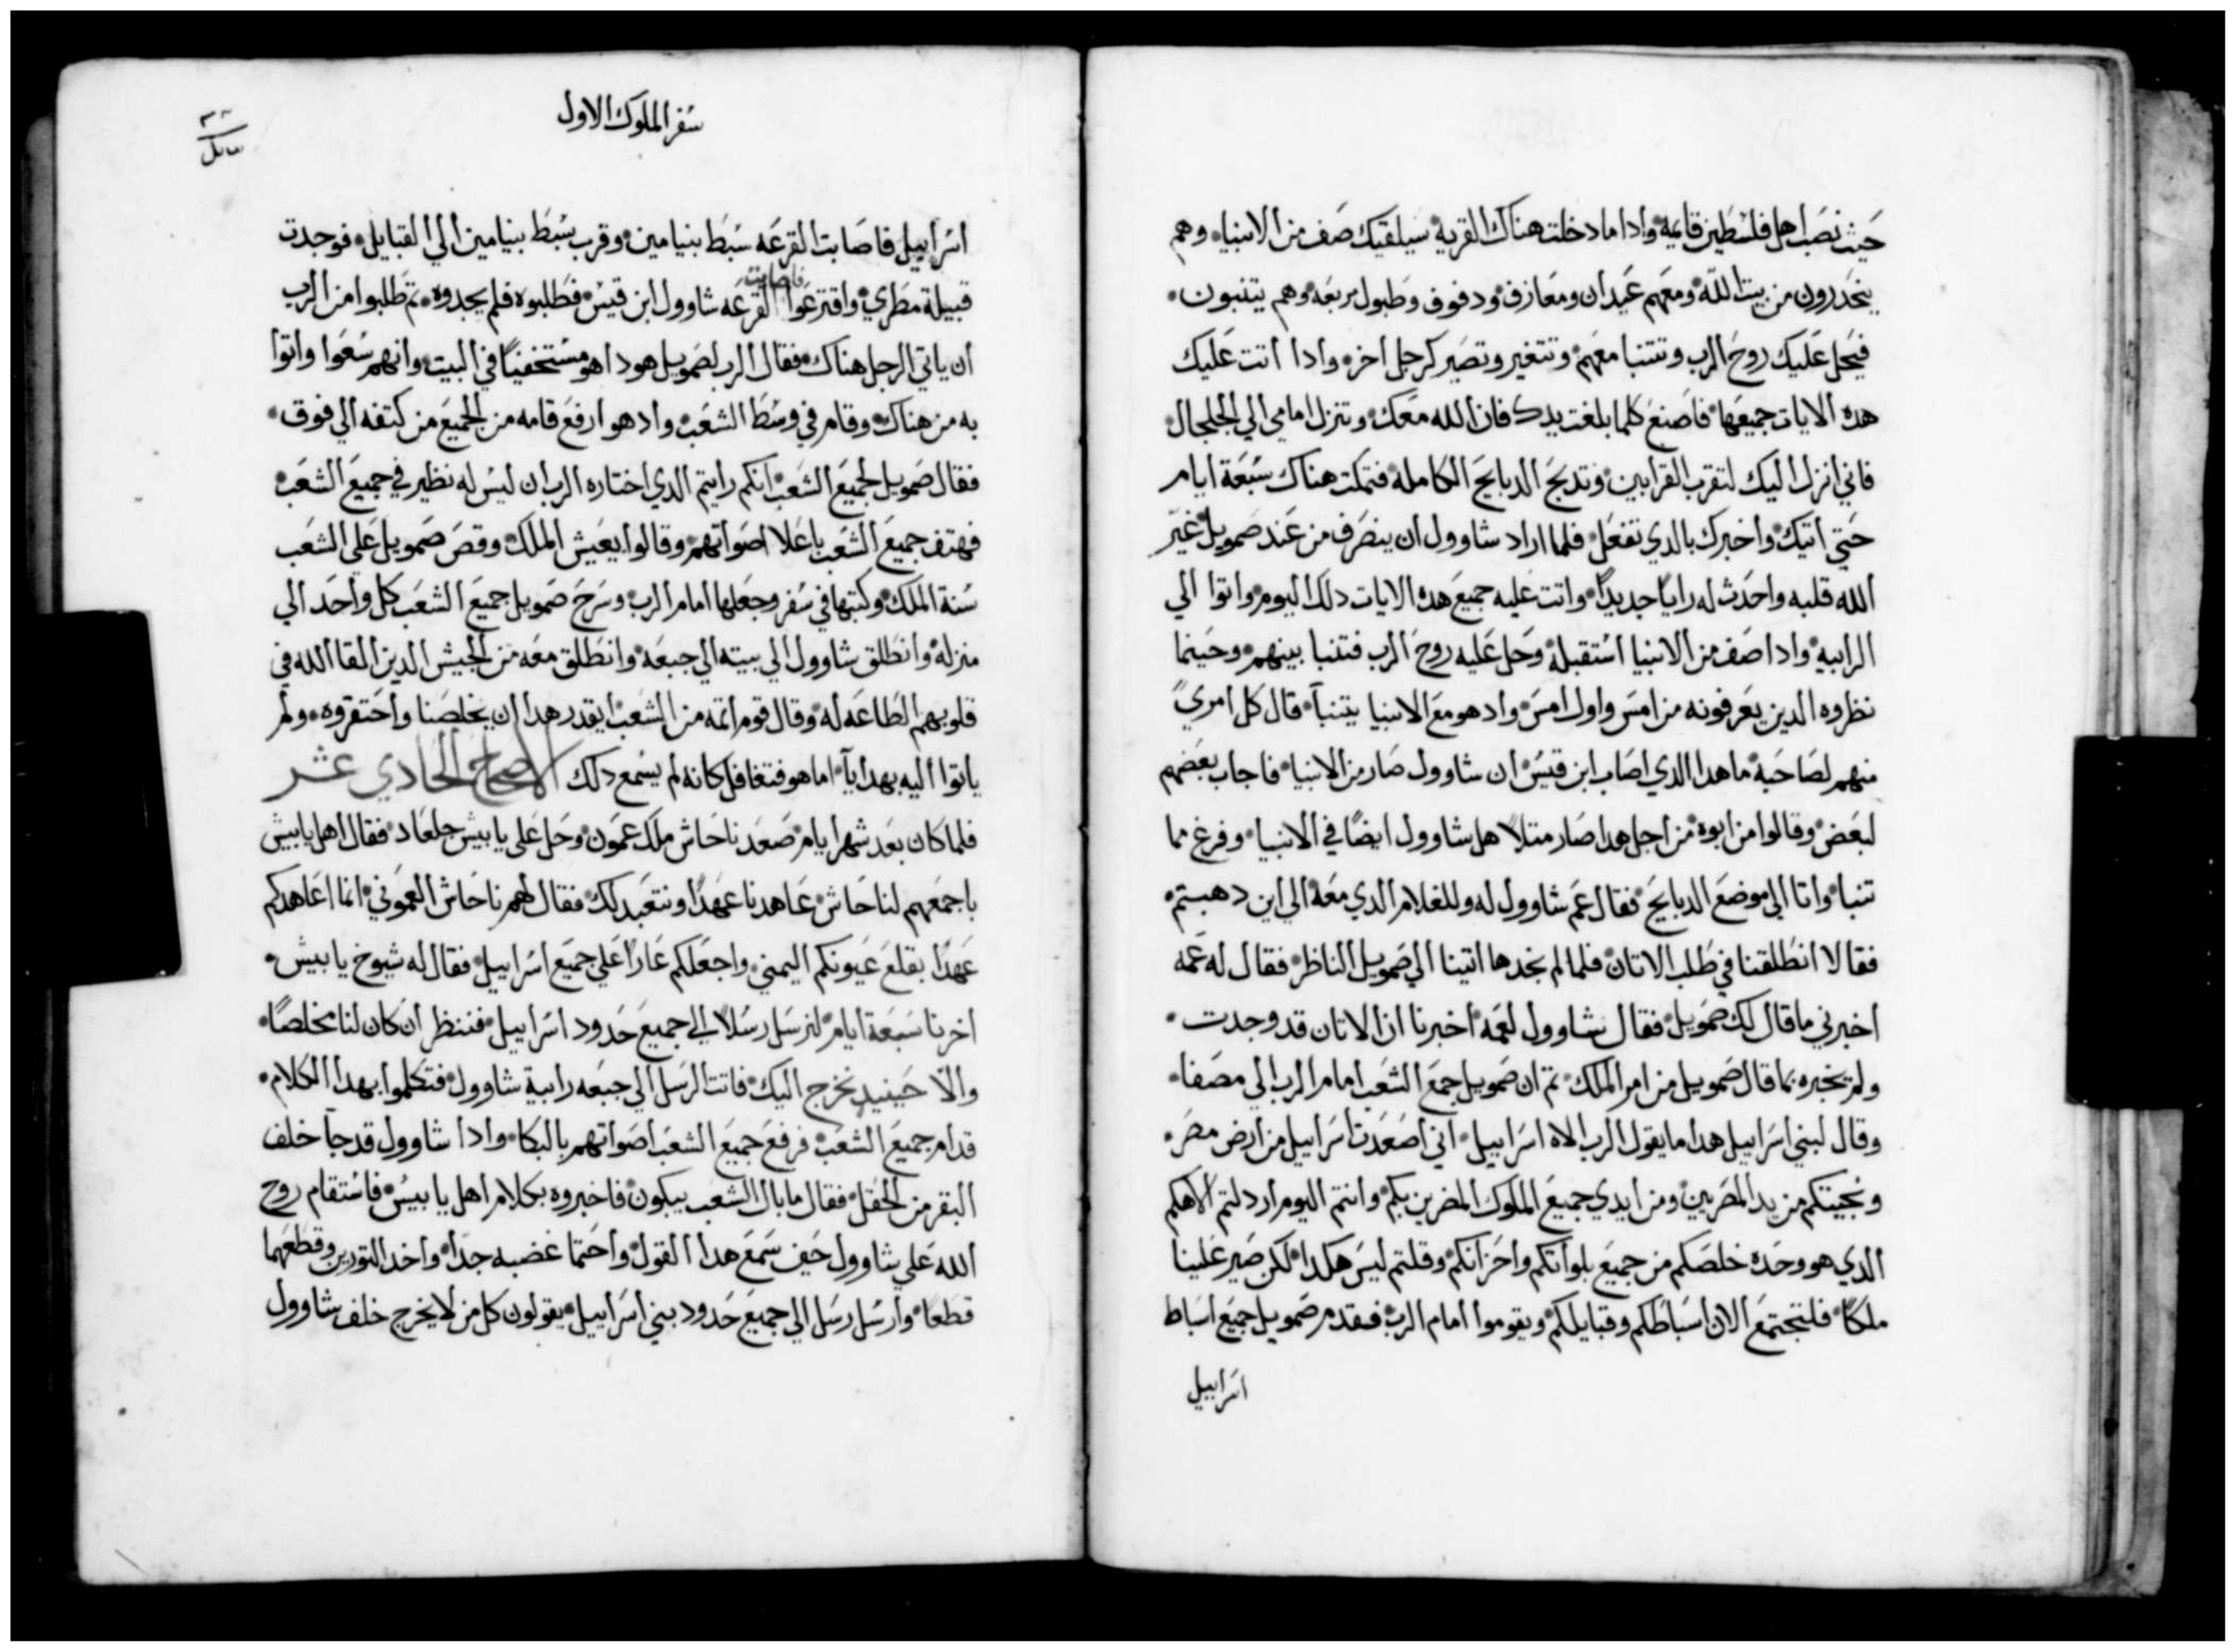 حيث نصب اهل فلسطين قايمة وادا ما دخلت هناك القرية سيلقيك صف من الانبيا وهم
ينحدرون من بيت الله ومعهم عيدان ومعازف ودفوف وطبول مربعه وهم يتنبون
فيحل عليك روح الرب وتتنبا معهم وتتغير وتصير كرجل اخر وادا اتت عليك
هده الايات جميعها فاصنع كلما بلغت يدك فان الله معك وتنزل امامي الي الجلجال
فاني انزل اليك لتقرب القرابين وتدبح الدبايح الكامله فتمكت هناك سبعة ايام
حتي اتيك واخبرك بالدي تفعل فلما اراد شاوول ان ينصرف من عند صمويل غير
الله قلبه واحدث له رايا جديدا واتت عليه جميع هده الايات دلك اليوم واتوا الي
الرابيه وادا صف من الانبيا استقبله وحل عليه روح الرب فتنبا بينهم وحينما
نظروه الدين يعرفونه من امس واول امس واد هو مع الانبيا يتنبآ قال كل امري
منهم لصاحبه ما هدا الدي اصاب ابن قيس ان شاوول صار من الانبيا فاجاب بعضهم
لبعض وقالوا من ابوه من اجل هدا صار متلا هل شاوول ايضا في الانبيا وفرغ مما
تنبا واتا الي موضع الدبايح فقال عم شاوول له وللغلام الدي معه الي اين دهبتم
فقالا انطلقنا في طلب الاتان فلما لم نجدها اتينا الي صمويل الناظر فقال له عمه
اخبرني ما قال لك صمويل فقال شاوول لعمه اخبرنا ان الاتان قد وجدت
ولم يخبره بما قال صمويل من امر الملك تم ان صمويل جمع الشعب امام الرب الي مصفا
وقال لبني اسرابيل هدا ما يقول الرب الاه اسرابيل اني اصعدت اسرابيل من ارض مصر
ونجيتكم من يد المصريين ومن ايدي جميع الملوك المضرين بكم وانتم اليوم اردلتم الاهكم
الدي هو وحده خلصكم من جميع بلواتكم واحزانكم وقلتم ليس هكدا لكن صير علينا
ملكا فلتجتمع الان اسباطكم وقبايلكم ويقوموا امام الرب فقدم صمويل جميع اسباط
اسرابيل
سفر الملوك الاول
اسرابيل فاصابت القرعه سبط بنيامين وقرب سبط بنيامين الي القبايل فوجدت
قبيلة مطري واقترعوا فاصابت القرعه شاوول ابن قيس فطلبوه فلم يجدوه تم طلبوا من الرب
ان ياتي الرجل هناك فقال الرب لصمويل هودا هو مستخفيا في البيت وانهم سعوا واتوا
به من هناك وقام في وسط الشعب واد هو ارفع قامه من الجميع من كتفه الي فوق
فقال صمويل لجميع الشعب انكم رايتم الدي اختاره الرب ان ليس له نظير في جميع الشعب
فهتف جميع الشعب باعلا اصواتهم وقالوا يعيش الملك وقص صمويل علي الشعب
سنة الملك وكتبها في سفر وجعلها امام الرب وسرح صمويل جميع الشعب كل واحد الي
منزله وانطلق شاوول الي بيته الي جبعه وانطلق معه من الجيش الدين القا الله في
قلوبهم الطاعه له وقال قوم اتمه من الشعب ايقدر هدا ان يخلصنا واحتقروه ولم
ياتوا اليه بهدايآ اما هو فتغافل كانه لم يسمع دلك الاصحاح الحادي عشر
فلما كان بعد شهر ايام صعد ناحاش ملك عمون وحل علي يابيش جلعاد فقال اهل يابيش
باجمعهم لناحاش عاهدنا عهدا ونتعبد لك فقال لهم ناحاش العموني انما اعاهدكم
عهدا بقلع عيونكم اليمني واجعلكم عارا علي جميع اسرابيل فقال له شيوخ يابيش
اخرنا سبعة ايام لنرسل رسلا الي جميع حدود اسرابيل فننظر ان كان لنا مخلصا
والا حينيد نخرج اليك فاتت الرسل الي جبعه رابية شاوول فتكلموا بهدا الكلام
قدام جميع الشعب فرفع جميع الشعب اصواتهم بالبكا وادا شاوول قد جآ خلف
البقر من الحقل فقال ما بال الشعب يبكون فاخبروه بكلام اهل يابيس فاستقام روح
الله علي شاوول حيف سمع هدا القول واحتما غضبه جدا واخد التورين وقطعهما
قطعا وارسل رسل الي جميع حدود بني اسرابيل يقولون كل من لا يخرج خلف شاوول